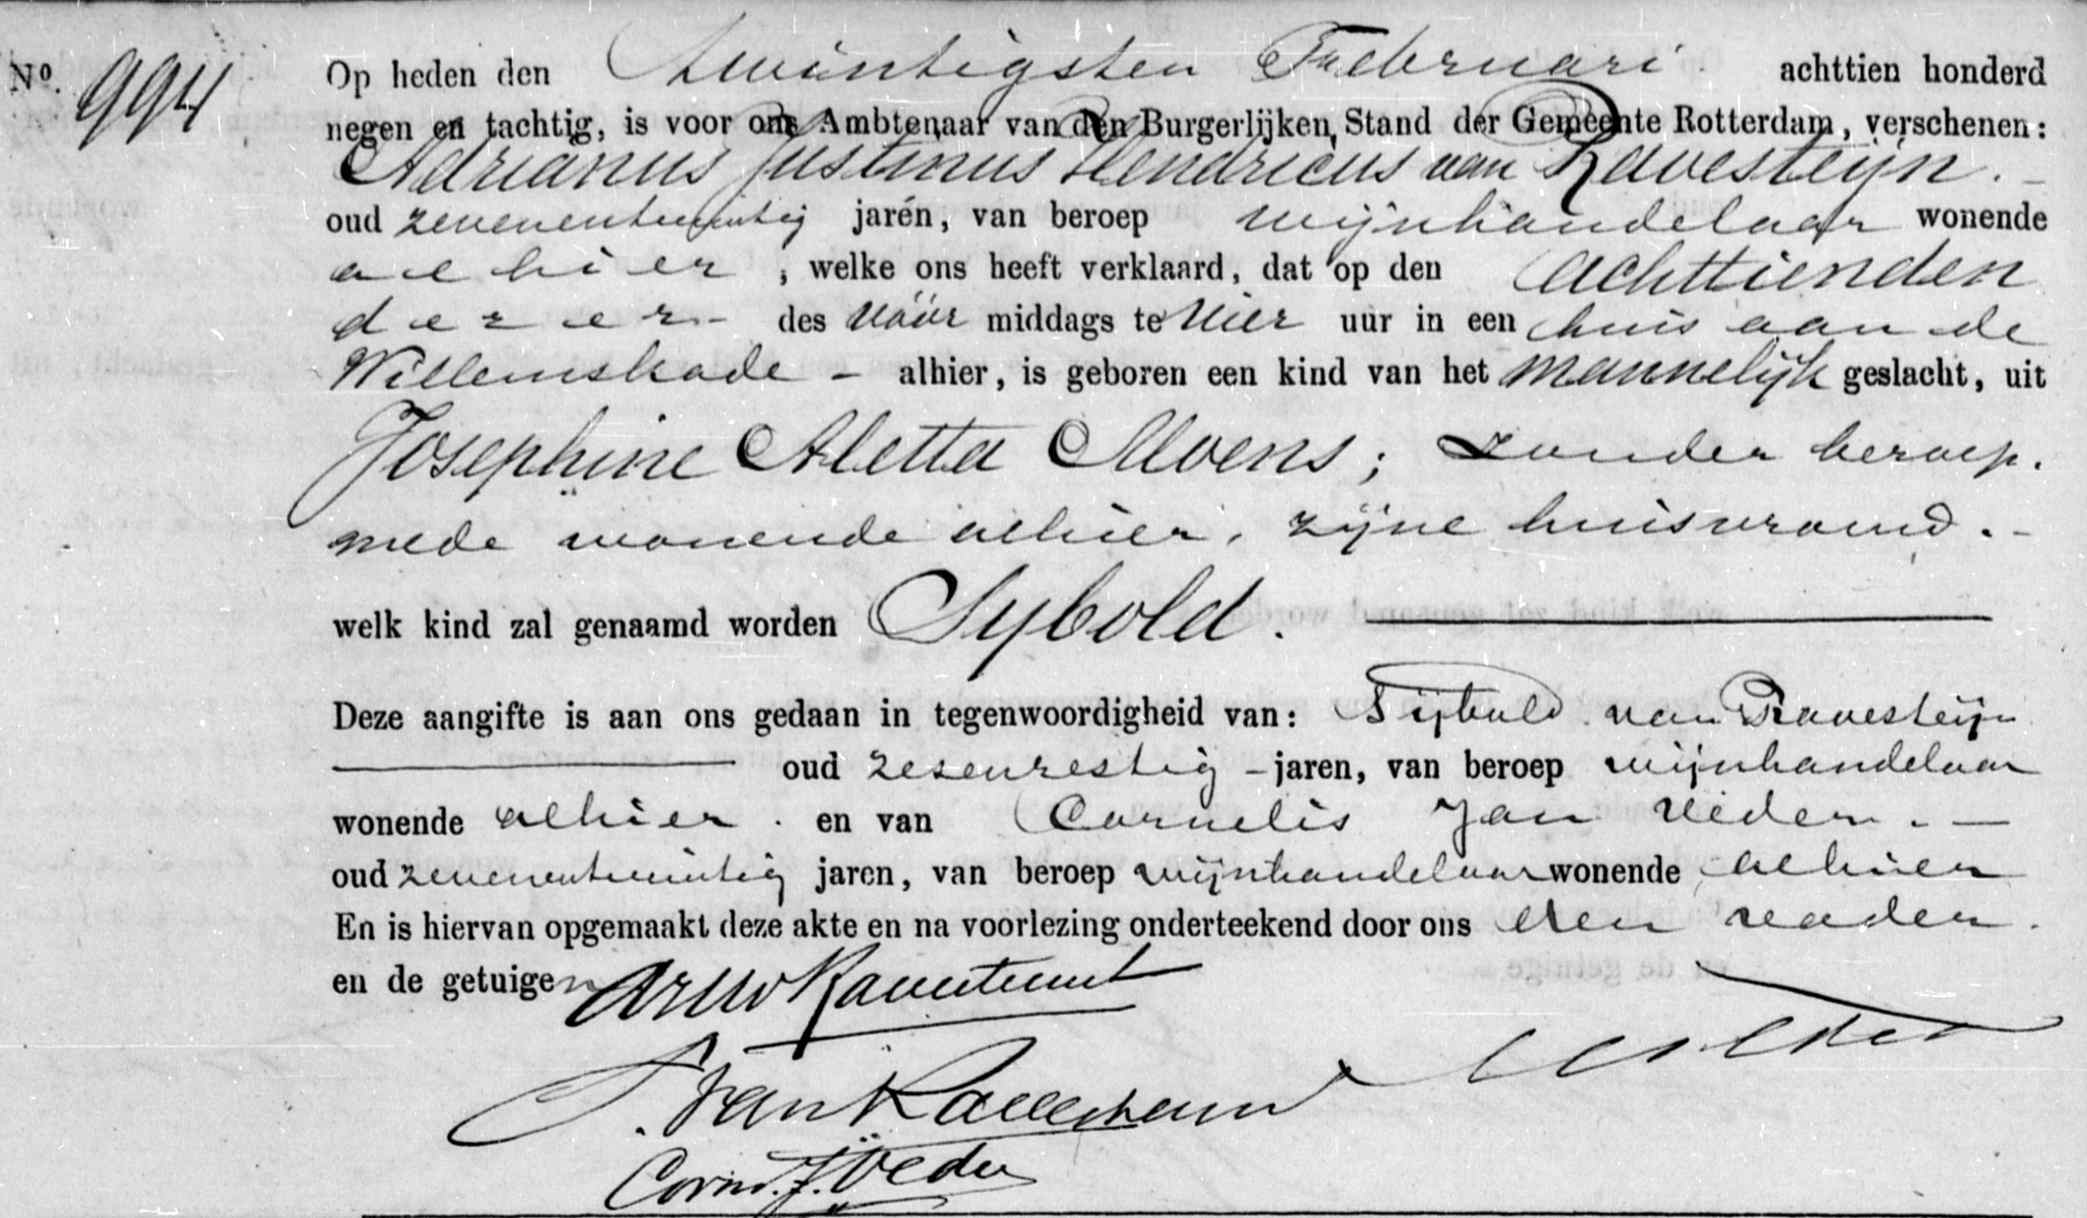 No. 994
Op heden den Twintigsten Februari achttien honderd
negen en tachtig, is voor ons Ambtenaar van den Burgerlijken Stand der Gemeente Rotterdam, verschenen:
Adrianus Justinus Hendricus van Ravesteijn.
oud zevenentwintig jaren, van beroep wijnhandelaar wonende
alhier, welke ons heeft verklaard, dat op den achttienden
dezer des vóór middags te vier uur in een huis aan de
Willemskade - alhier, is geboren een kind van het mannelijk geslacht, uit
Josephine Aletta Moens; zonder beroep.
mede wonende alhier, zijne huisvrouw.
welk kind zal genaamd worden Sybold.
Deze aangifte is aan ons gedaan in tegenwoordigheid van: Sijbold van Ravesteijn
oud zesenzestig - jaren, van beroep wijnhandelaar
wonende alhier. en van Cornelis Jan Veder. -
oud zevenentwintig jaren, van beroep wijnhandelaar wonende alhier
En is hiervan opgemaakt deze akte en na voorlezing onderteekend door ons den vader.
en de getuigen
S. van Ravesteijn
Corns. J. Veder